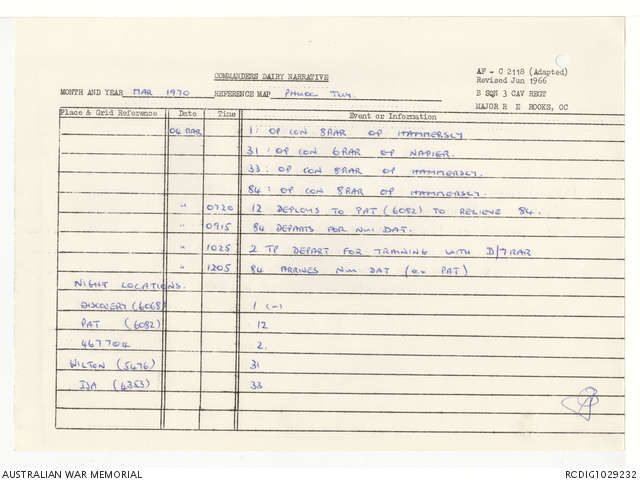 COMMANDERS DAIRY NARRATIVE
AF - C 2118 (Adapted)
Revised Jun 1966
MONTH AND YEAR MAR 1970 REFERENCE MAP PHUOC TUY.
B SQN 3 CAV REGT
MAJOR R E ROOKS, OC
Place & Grid Reference Date Time Event or Information
04 MAR 1: OP CON 8RAR OP HAMMERSLY
31: OP CON 6RAR OP NAPIER.
33: OP CON 8RAR OP HAMMERSLY.
84: OP CON 8RAR OP HAMMERSLY.
" 0720 12 DEPLOYS TO PAT (6082) TO RELIEVE 84.
" 0915 84 DEPARTS FOR NUI DAT.
" 1025 2 TP DEPART FOR TRAINING WITH D/7RAR
" 1205 84 ARRIVES NUI DAT (ex PAT)
NIGHT LOCATIONS.
DISCOVERY (6068) 1 (-)
PAT (6082) 12
467704 2.
WILTON (5476) 31
IDA (6353) 33
AUSTRALIAN WAR MEMORIAL
RCDIG1029232